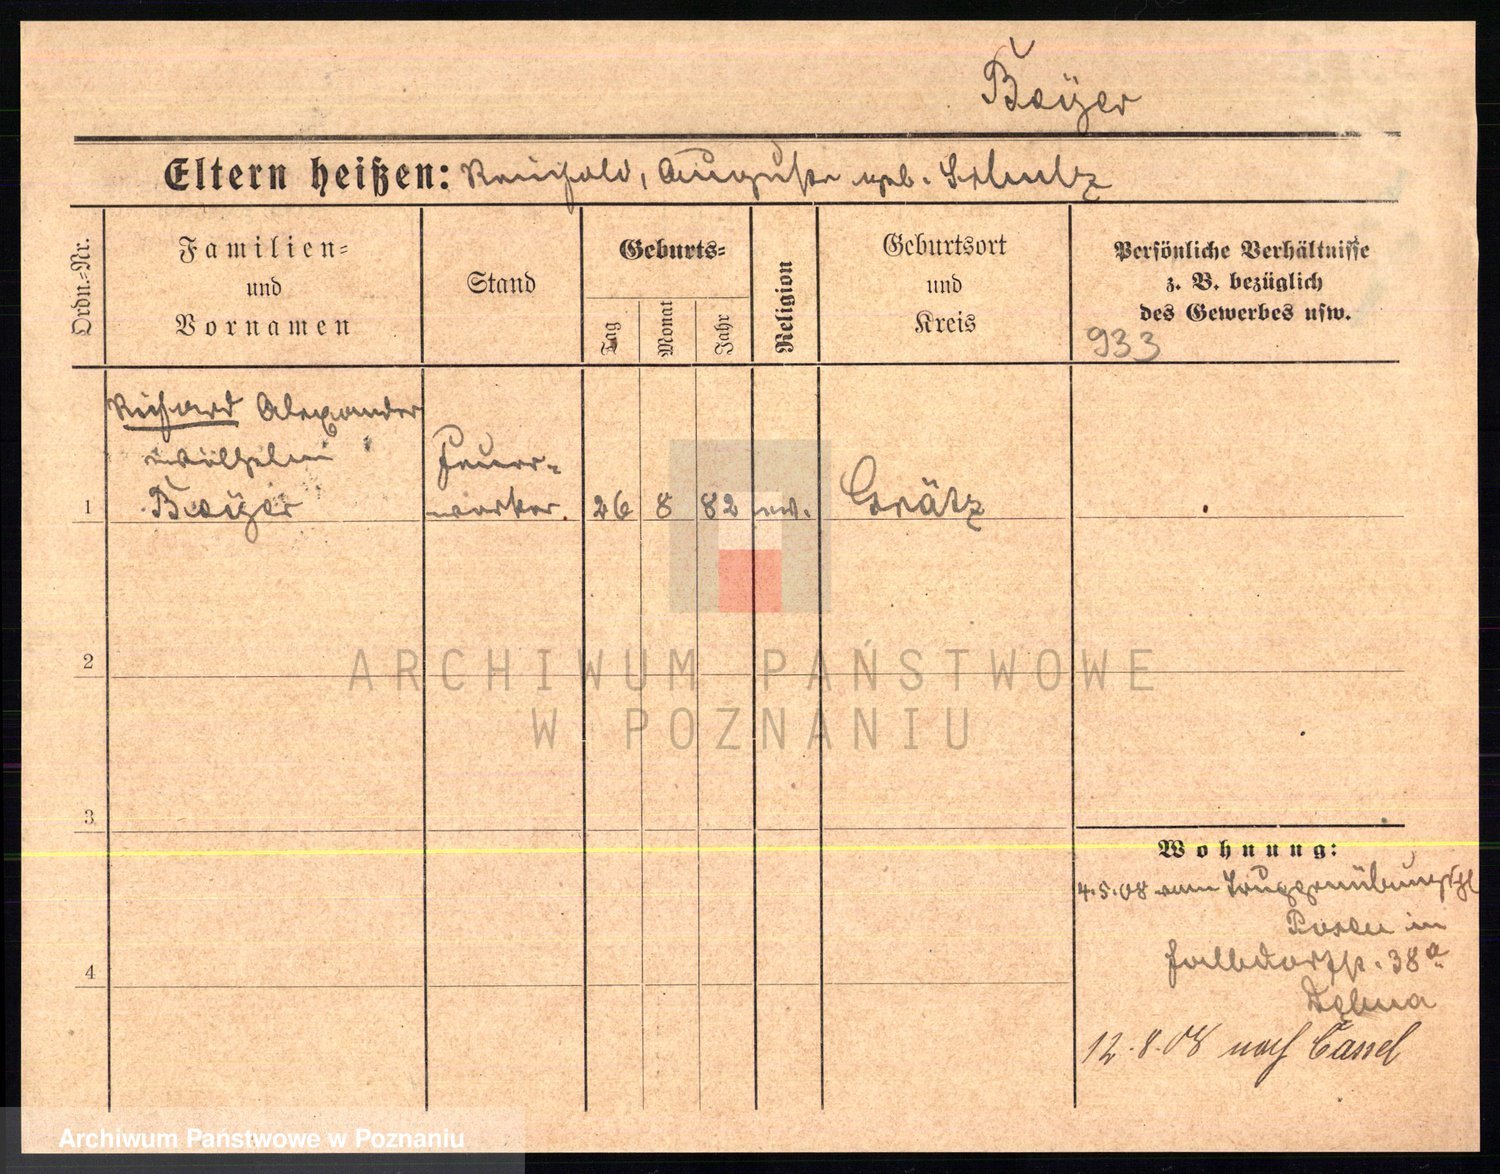 Bayer
Eltern heißen: Reinhold, Auguste geb. Schulz
Ordn.-Nr.
Familien= und Vornamen
Stand
Geburts=
Tag
Monat
Jahr
Religion
Geburtsort und Kreis
Persönliche Verhältnisse
z. B. bezüglich
des Gewerbes usw.
933
Richard Alexander
Wilhelm
Bayer
Feuer-
werker.
1
26 8 82 ev. Grätz
2
ARCHIWUM PAŃSTWOWE
W POZNANIU
3
Wohnung:
4.5.08 vom Truppenübungspl
Posen in
38a
4
12.8.08 nach Cassel
Archiwum Państwowe w Poznaniu